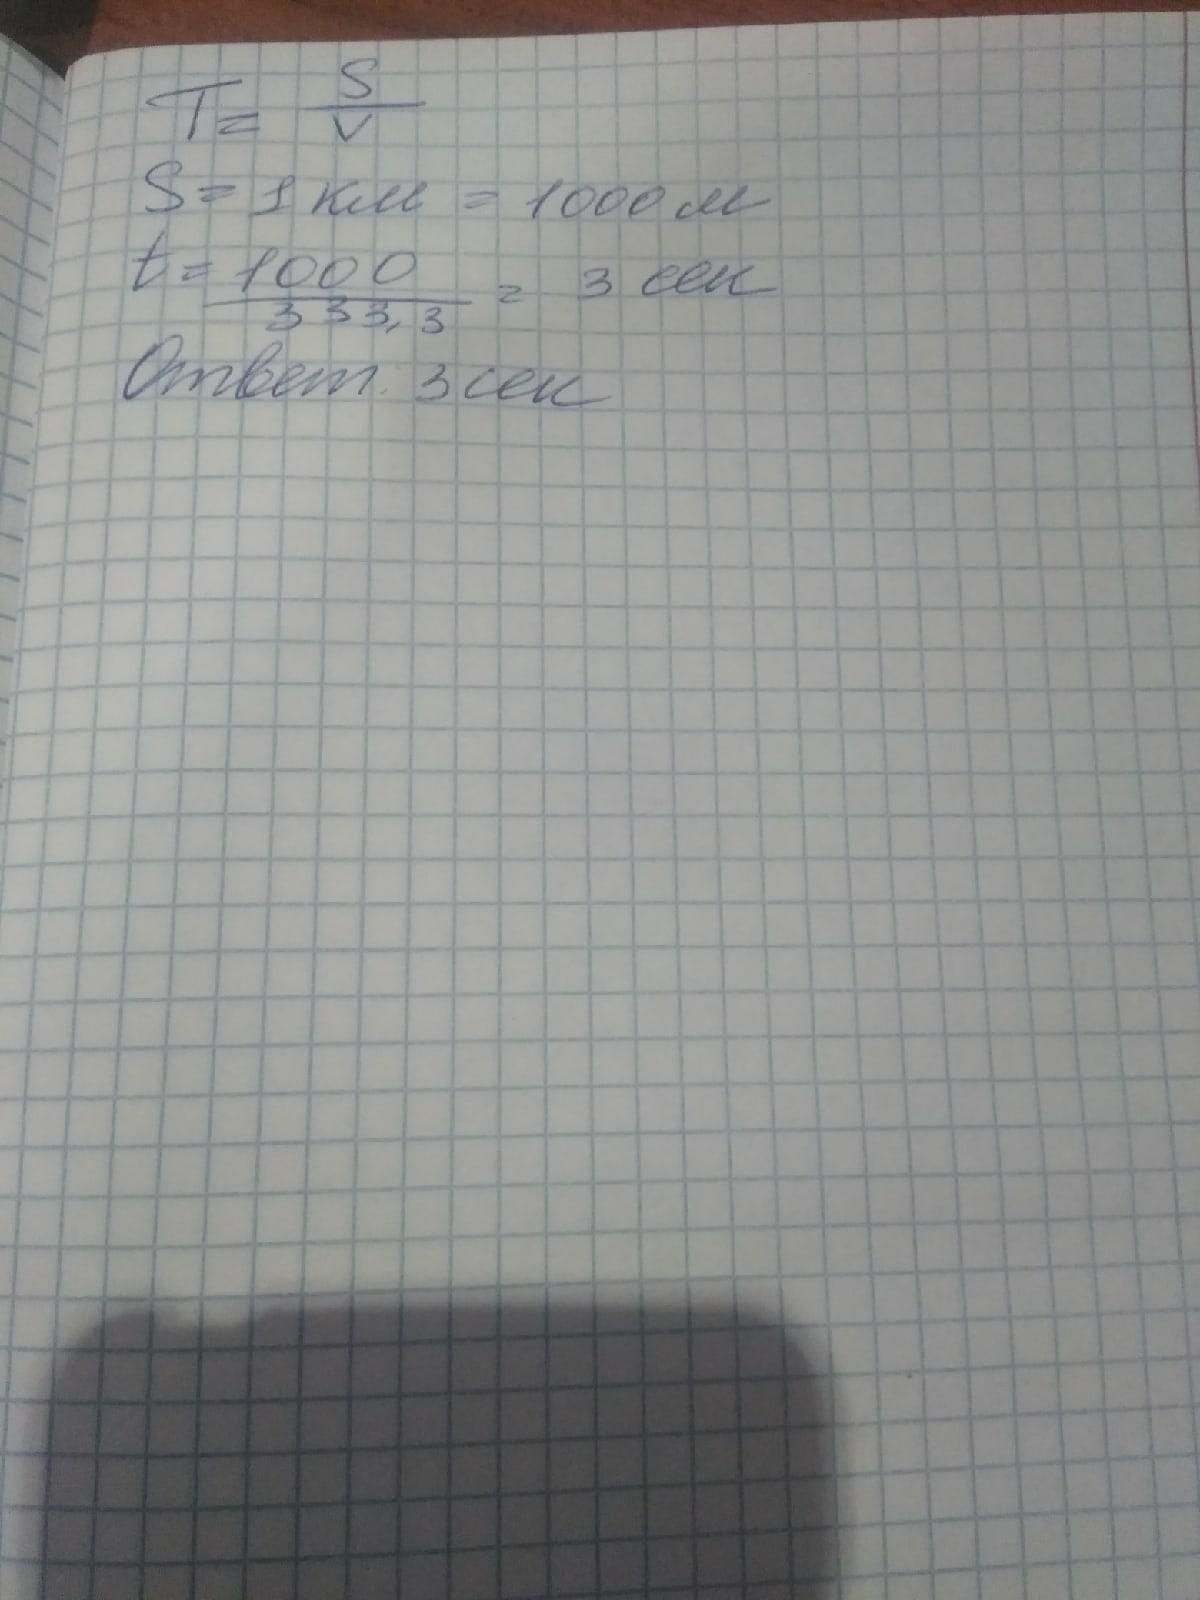 T= S/V
S= 1 км = 1000 м
t= 1000/333,3 = 3 сек
Ответ: 3 сек